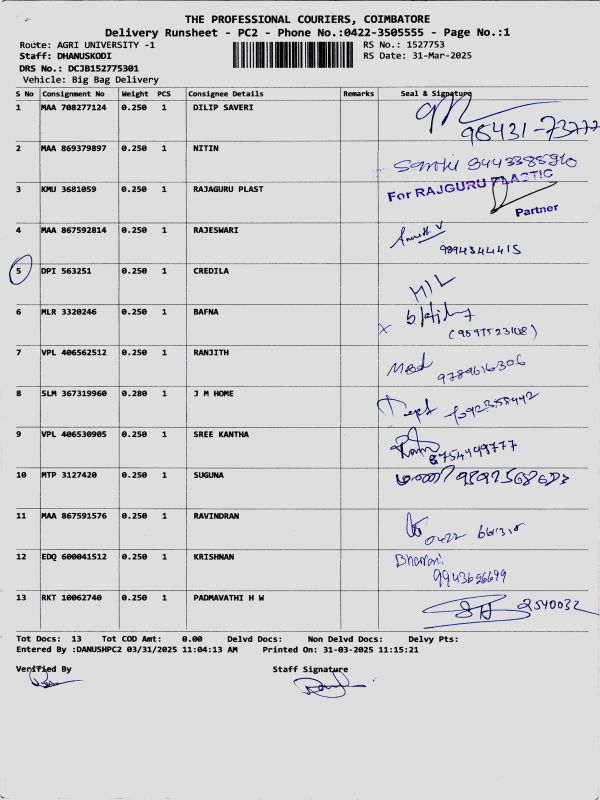 THE PROFESSIONAL COURIERS, COIMBATORE
Delivery Runsheet - PC2 - Phone No.:0422-3505555 - Page No.:1
Route: AGRI UNIVERSITY -1 RS No.: 1527753
Staff: DHANUSKODI RS Date: 31-Mar-2025
DRS No.: DCJB152775301
Vehicle: Big Bag Delivery
S No Consignment No Weight PCS Consignee Details Remarks Seal & Signature
1 MAA 708277124 0.250 1 DILIP SAVERI
2 MAA 869379897 0.250 1 NITIN
3 KMU 3681059 0.250 1 RAJAGURU PLAST For RAJGURU PLASTIC
Partner
4 MAA 867592814 0.250 1 RAJESWARI
9894344415
5 DPI 563251 0.250 1 CREDILA
6 MLR 3320246 0.250 1 BAFNA
7 VPL 406562512 0.250 1 RANJITH
9789616306
8 SLM 367319960 0.280 1 J M HOME
9 VPL 406530905 0.250 1 SREE KANTHA
8754449777
10 MTP 3127420 0.250 1 SUGUNA
11 MAA 867591576 0.250 1 RAVINDRAN
0422
12 EDQ 600041512 0.250 1 KRISHNAN
Bharani
9943656699
13 RKT 10062740 0.250 1 PADMAVATHI H W 2540032
Tot Docs: 13 Tot COD Amt: 0.00 Delvd Docs: Non Delvd Docs: Delvy Pts:
Entered By :DANUSHPC2 03/31/2025 11:04:13 AM Printed On: 31-03-2025 11:15:21
Verified By Staff Signature